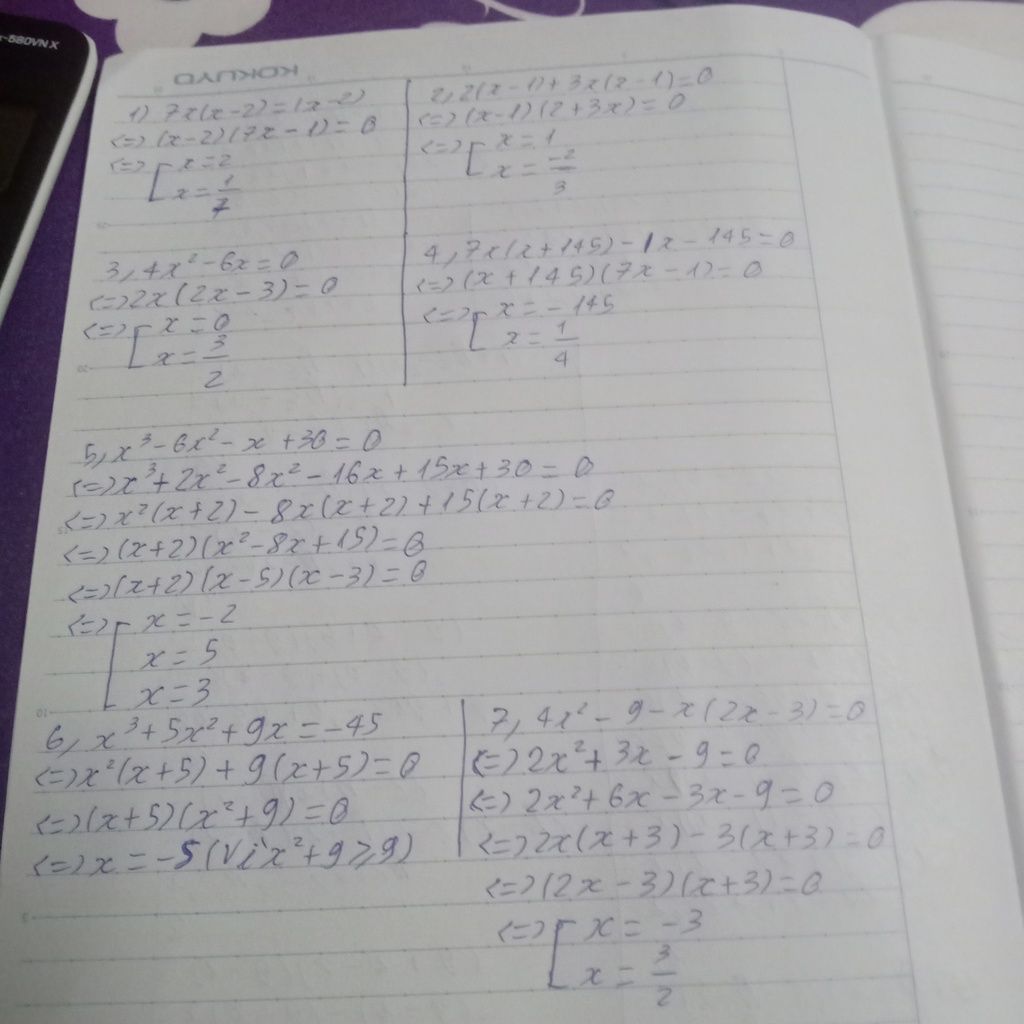 -580VNX
KOKUYO
1) 7x(x-2)=(x-2)
<=>(x-2)(7x-1)=0
<=>[x=2
x=1/7
2, 2(x-1)+3x(x-1)=0
<=>(x-1)(2+3x)=0
<=>[x=1
x=-2/3
3, 4x²-6x=0
<=>2x(2x-3)=0
<=>[x=0
x=3/2
4, 7x(x+145)-1x-145=0
<=>(x+145)(7x-1)=0
<=>[x=-145
x=1/4
5, x³-6x²-x+30=0
<=>x³+2x²-8x²-16x+15x+30=0
<=>x²(x+2)-8x(x+2)+15(x+2)=0
<=>(x+2)(x²-8x+15)=0
<=>(x+2)(x-5)(x-3)=0
<=>[x=-2
x=5
x=3
6, x³+5x²+9x=-45
<=>x²(x+5)+9(x+5)=0
<=>(x+5)(x²+9)=0
<=>x=-5(Vì x²+9⩾9)
7, 4x²-9-x(2x-3)=0
<=>2x²+3x-9=0
<=>2x²+6x-3x-9=0
<=>2x(x+3)-3(x+3)=0
<=>(2x-3)(x+3)=0
<=>[x=-3
x=3/2